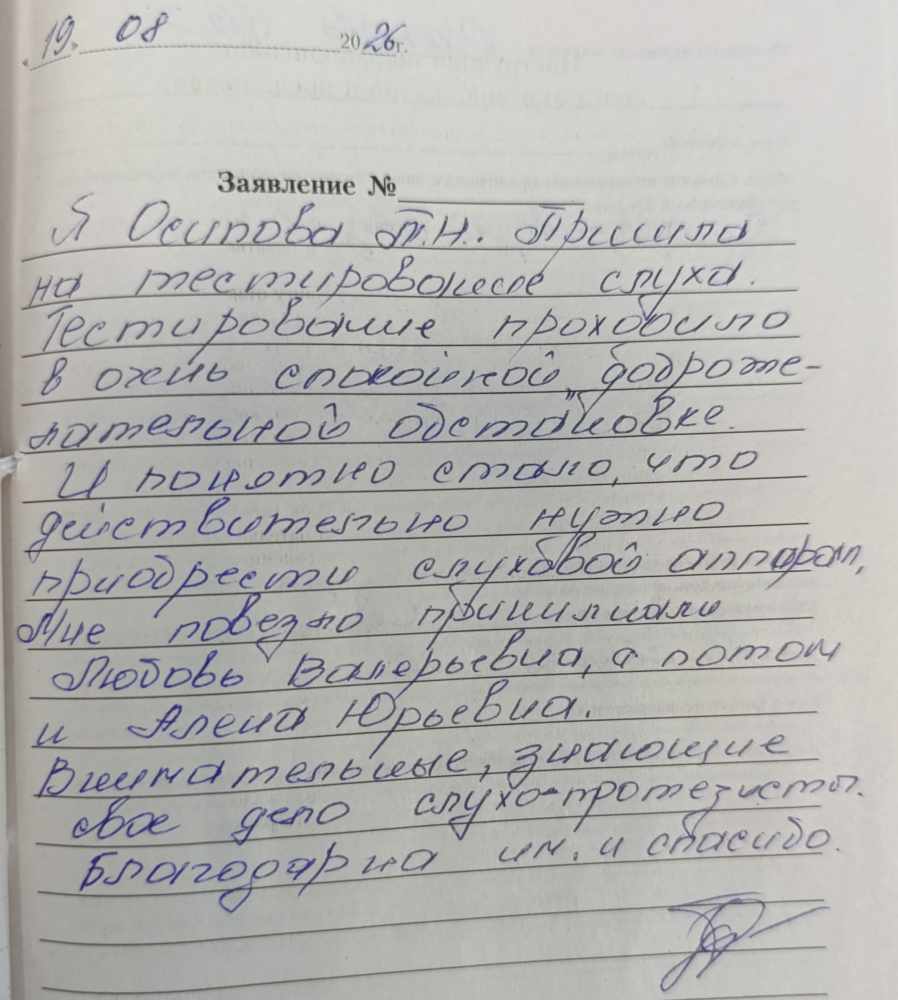 "19" 08 2026 г.
Заявление №
Я Осипова Т.Н. Пришла
на тестирование слуха.
Тестирование проходило
в очень спокойной, доброже-
лательной обстановке.
И понятно стало, что
действительно нужно
приобрести слуховой аппарат,
Мне повезло принимали
Любовь Валерьевна, а потом
и Алена Юрьевна.
Внимательные, знающие
свое дело слухо-протезисты.
Благодарна им. и спасибо.